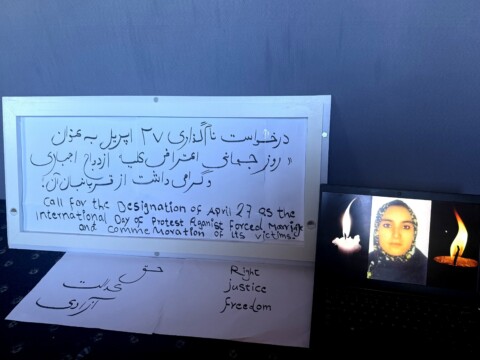 درخواست نامگذاری ۲۷ اپریل به عنوان
روز جهانی اعتراض علیه ازدواج اجباری
و گرامی داشت از قربانیان آن!
Call for the Designation of April 27 as the
International Day of Protest Against Forced Marriage
and Commemoration of Its Victims!
حق
عدالت
آزادی
Right
justice
freedom